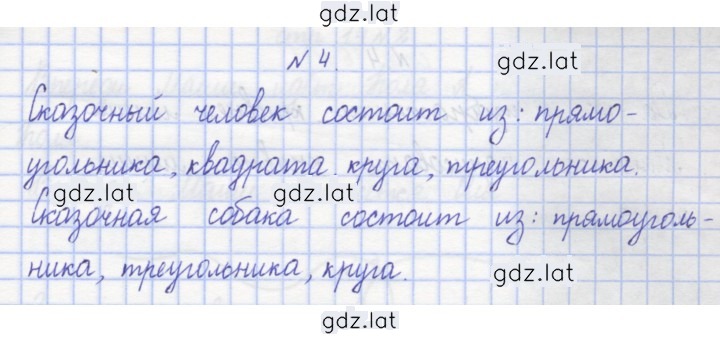 gdz.lat
N 4.
gdz.lat
Сказочный человек состоит из: прямо-
угольника, квадрата. круга, треугольника.
gdz.lat gdz.lat
Сказочная собака состоит из: прямоуголь-
ника, треугольника, круга.
gdz.lat
gdz.lat